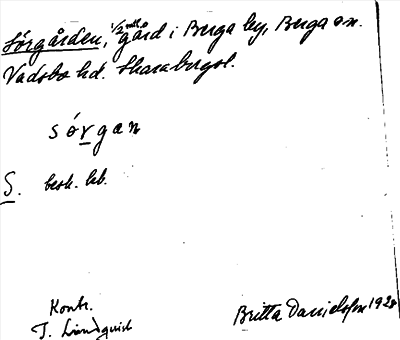 Sörgården, 1/2 mtl. gård i Berga by, Berga sn.
Vadsbo hd. Skarabergsl.
sǿrgan
S. besk. bb.
Kontr.
T. Lindquist
Britta Danielsson 1928